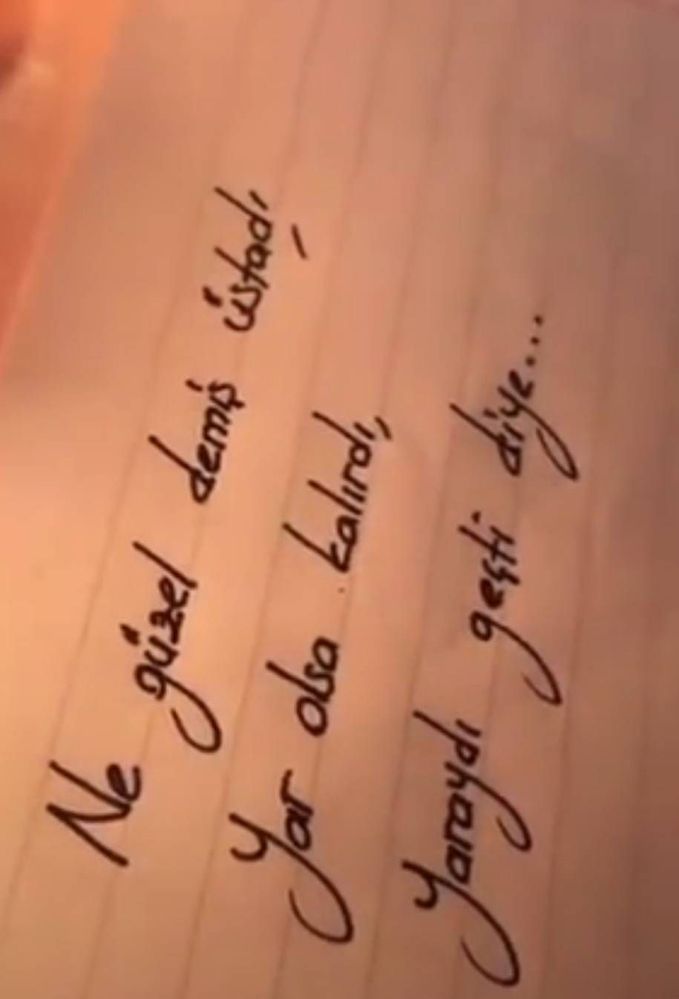 Ne güzel demiş üstad,
Yar olsa kalırdı,
Yaraydı geçti diye...